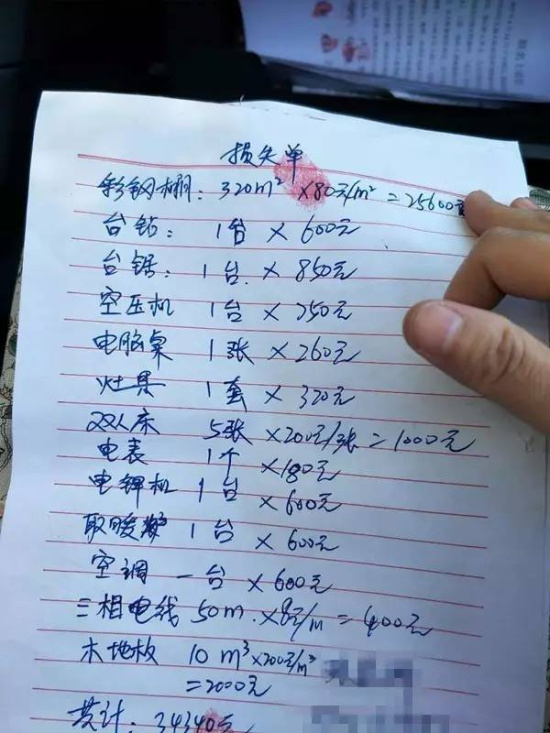 损失单
彩钢棚：320m² ×80元/m² = 25600元
台钻： 1台 × 600元
台锯： 1台 × 850元
空压机 1台 × 250元
电脑桌 1张 ×260元
灶具 1套 × 320元
双人床 5张 ×200元/张 = 1000元
电表 1个 ×180元
电焊机 1台 ×600元
取暖炉 1台 × 600元
空调 一台 × 600元
三相电线 50m ×8元/m = 400元
木地板 10 m³×200元/m³
=2000元
共计：34340元